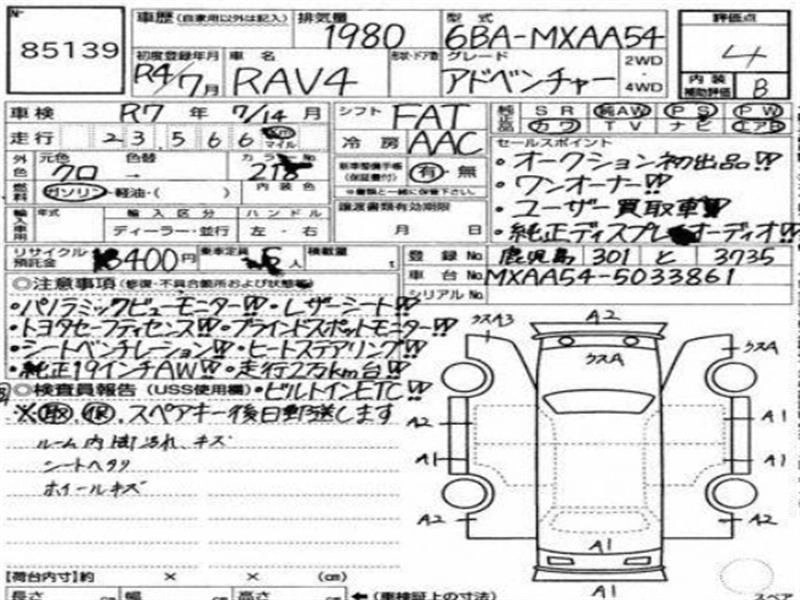 № 85139
車歴(自家用以外は記入) 排気量 1980 型式 6BA-MXAA54 評価点 4
初度登録年月 R4/7月 車名 RAV4 形状・ドア数 グレード アドベンチャー 2WD・4WD 内装補助評価 B
車検 R7年 7/14月 シフト FAT 純正品 SR 純AW PS PW
走行 23,566 km マイル 冷房 AAC カワ TV ナビ エアB
外色 元色 クロ 色替 → カラーNo 218 新車整備手帳(保証書付) 有・無 セールスポイント
※書類と一緒に保管下さい。
・オークション初出品!!
燃料 ガソリン・軽油・( ) 内装色
・ワンオーナー!!
輸入車用 年式 輸入区分 ハンドル 譲渡書類有効期限
・ユーザー買取車!!
ディーラー・並行 左・右 月 日
・純正ディスプレオーディオ!!
リサイクル預託金 8400円 乗車定員 5人 積載量 t 登録No. 鹿児島 301 と 3735
車台No. MXAA54-5033861
シリアルNo.
◎注意事項(修復・不具合箇所および状態等)
・パノラミックビューモニター!!・レザーシート!!
・トヨタセーフティセンス!!・ブラインドスポットモニター!!
・シートベンチレーション!!・ヒートステアリング!!
・純正19インチAW!!・走行2万km台!!
◎検査員報告(USS使用欄)・ビルトインETC!!
※取、保、スペアキー後日郵送します
ルーム内 汚れ、キズ
シートヘタリ
ホイールキズ
クスA3 A2 クスA
クスA
A2 A1
A1 A1
A2 A2
A1
A1
【荷台内寸】約 × × (cm)
長さ cm 幅 cm 高さ cm ←(車検証上の寸法) スペア